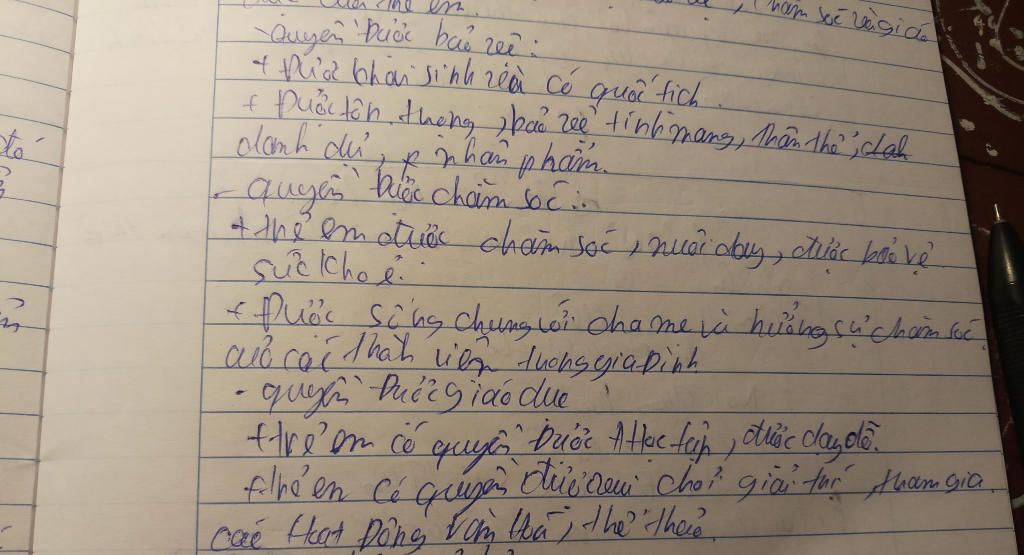 trẻ em. , chăm sóc và giáo
- quyền Được bảo vệ:
+ Được khai sinh và có quốc tịch.
+ Được tôn trọng, bảo vệ tính mạng, thân thể,
danh dự, nhân phẩm.
- quyền Được chăm sóc:
+ trẻ em được chăm sóc, nuôi dạy, được bảo vệ
sức khoẻ.
+ Được sống chung với cha mẹ và hưởng sự chăm sóc
của các thành viên trong gia Đình
- quyền Được giáo dục
+ trẻ em có quyền Được Học tập, được dạy dỗ.
+ trẻ em có quyền được vui chơi giải trí, tham gia
các Hoạt Động Văn Hoá, thể thao.